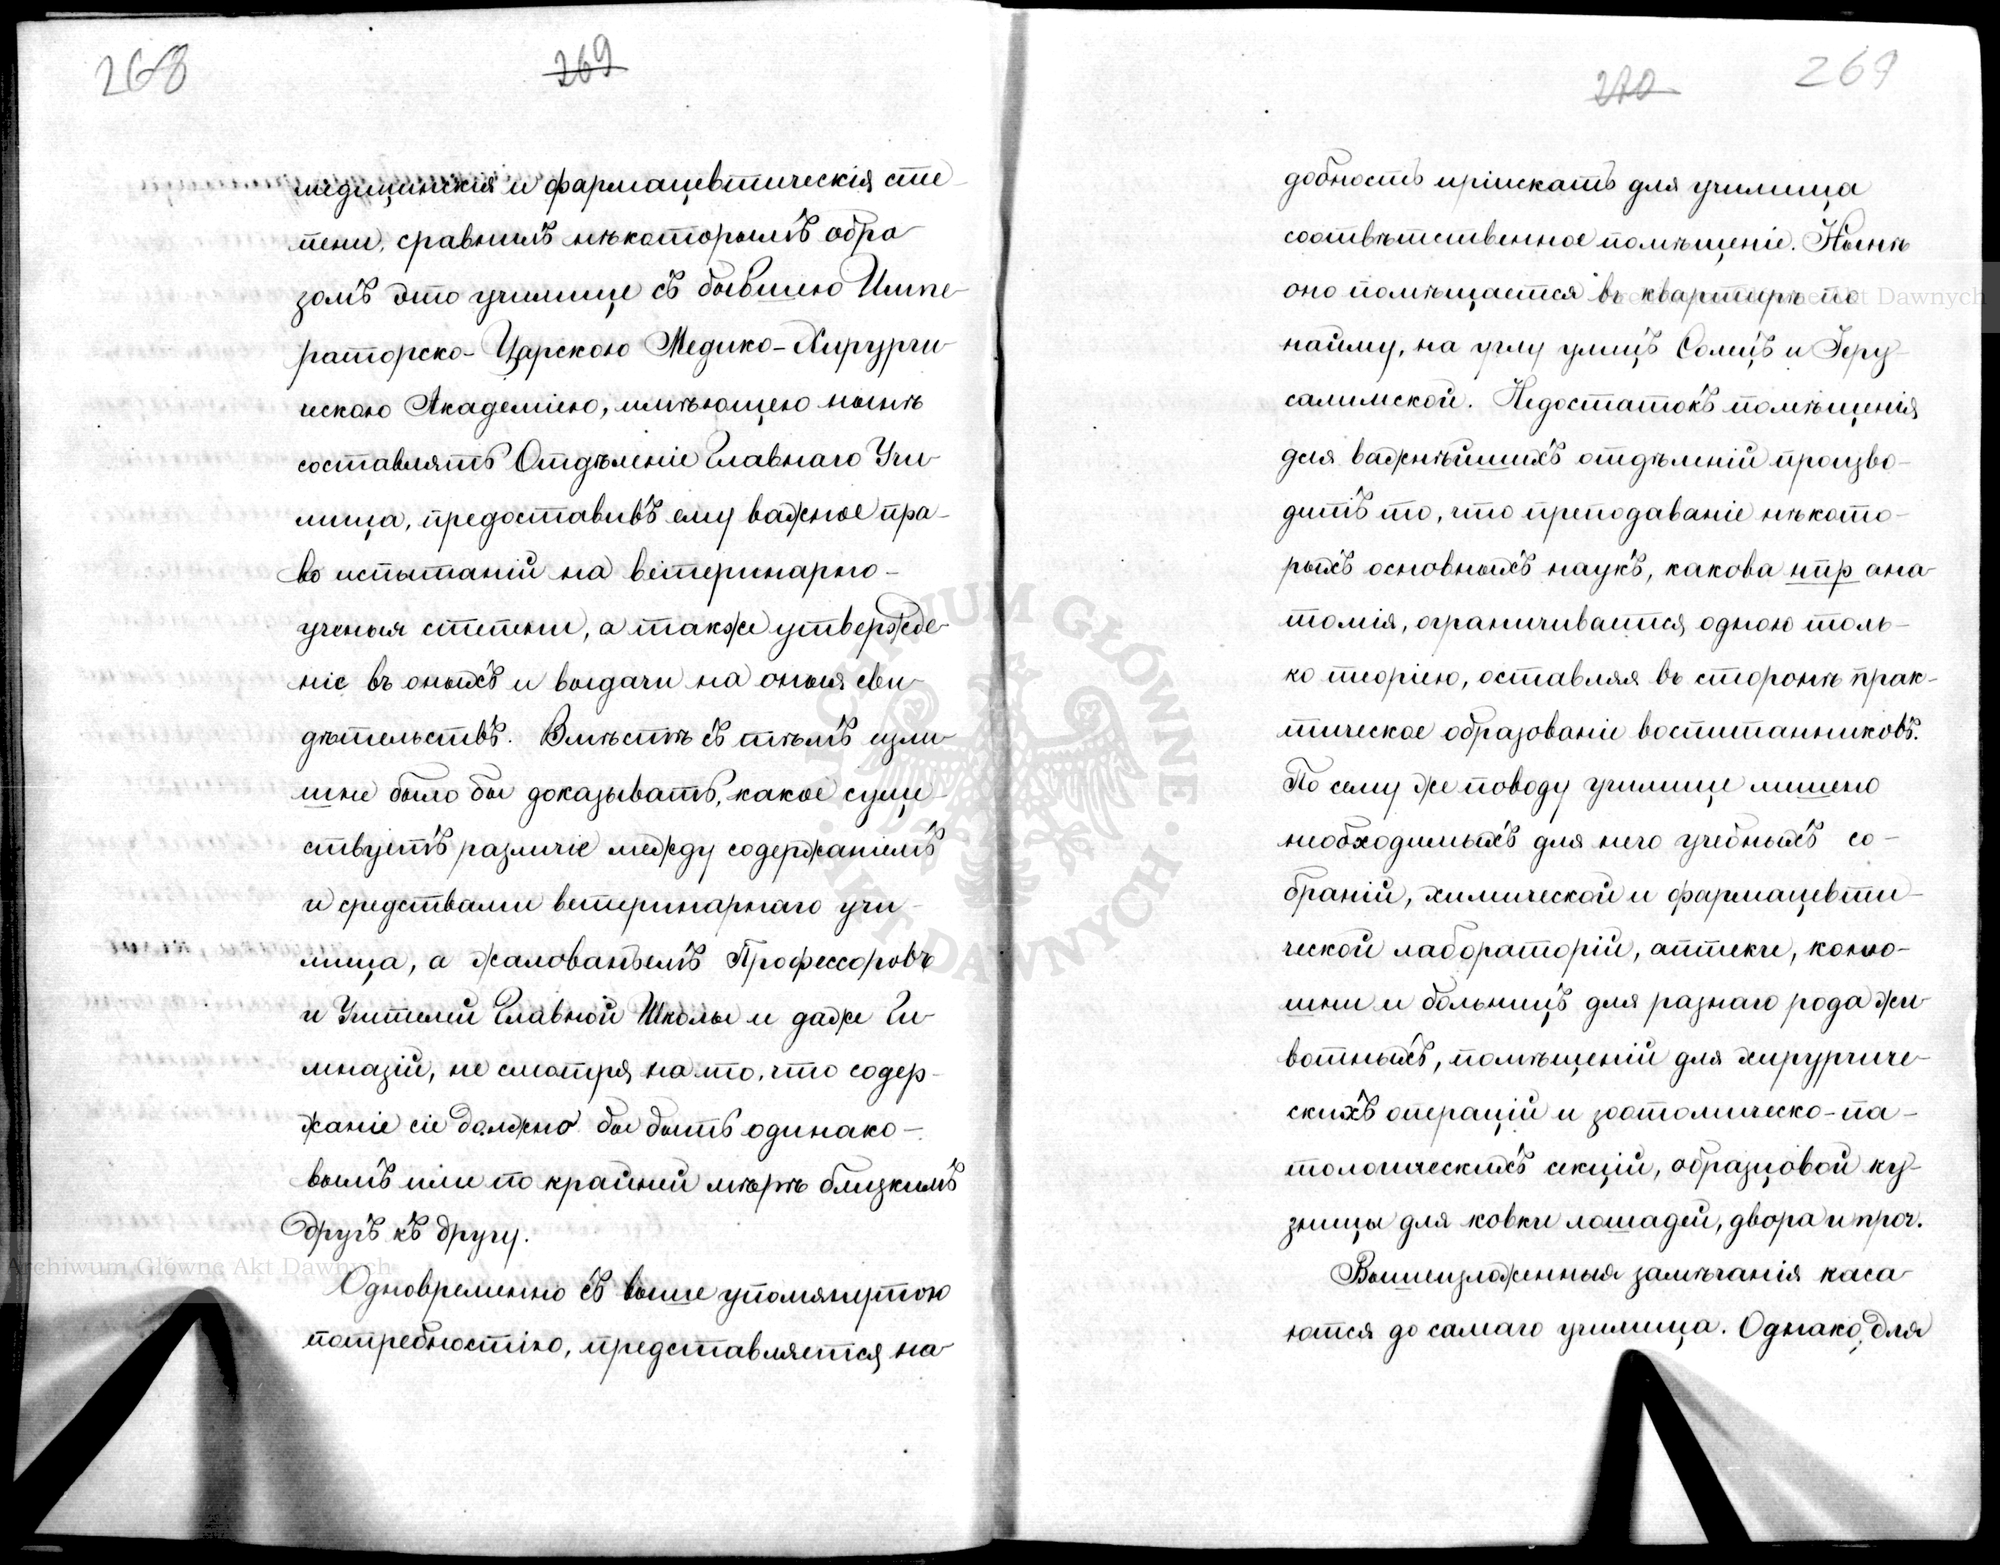 268
269
медицинскія и фармацевтическія сте-
пени, сравнилъ нѣкоторымъ обра-
зомъ это училище съ бывшею Импе-
раторско-Царскою Медико-Хирурги-
ческою Академіею, имѣющею нынѣ
составлять Отдѣленіе Главнаго Учи-
лища, предоставивъ ему важное пра-
во испытаній на ветеринарно-
ученыя степени, а также утвержде-
ніе въ оныхъ и выдачи на оныя сви-
дѣтельствъ. Вмѣстѣ съ тѣмъ изли-
шне было бы доказывать, какое суще-
ствуетъ различіе между содержаніемъ
и средствами ветеринарнаго учи-
лища, а жалованьемъ Профессоровъ
и Учителей Главной Школы и даже Ги-
мназій, не смотря на то, что содер-
жаніе сіе должно бы быть одинако-
вымъ или по крайней мѣрѣ близкимъ
другъ къ другу.
Одновременно съ выше упомянутою
потребностію, представляется на-
270
269
добность пріискать для училища
соотвѣтственное помѣщеніе. Нынѣ
оно помѣщается въ квартирѣ по
найму, на углу улицъ Солецъ и Іеру-
салимской. Недостатокъ помѣщенія
для важнѣйшихъ отдѣленій произво-
дитъ то, что преподаваніе нѣкото-
рыхъ основныхъ наукъ, какова нпр ана-
томія, ограничивается одною толь-
ко теоріею, оставляя въ сторонѣ прак-
тическое образованіе воспитанниковъ.
По сему же поводу училище лишено
необходимыхъ для него учебныхъ со-
браній, химической и фармацевти-
ческой лабораторій, аптеки, коню-
шни и больницъ для разнаго рода жи-
вотныхъ, помѣщеній для хирургиче-
скихъ операцій и зоотомическо-па-
тологическихъ секцій, образцовой ку-
зницы для ковки лошадей, двора и проч.
Вышеизложенныя замѣчанія каса-
ются до самаго училища. Однако, для
Archiwum Główne Akt Dawnych
Archiwum Główne Akt Dawnych
ARCHIWUM GŁÓWNE • AKT DAWNYCH •